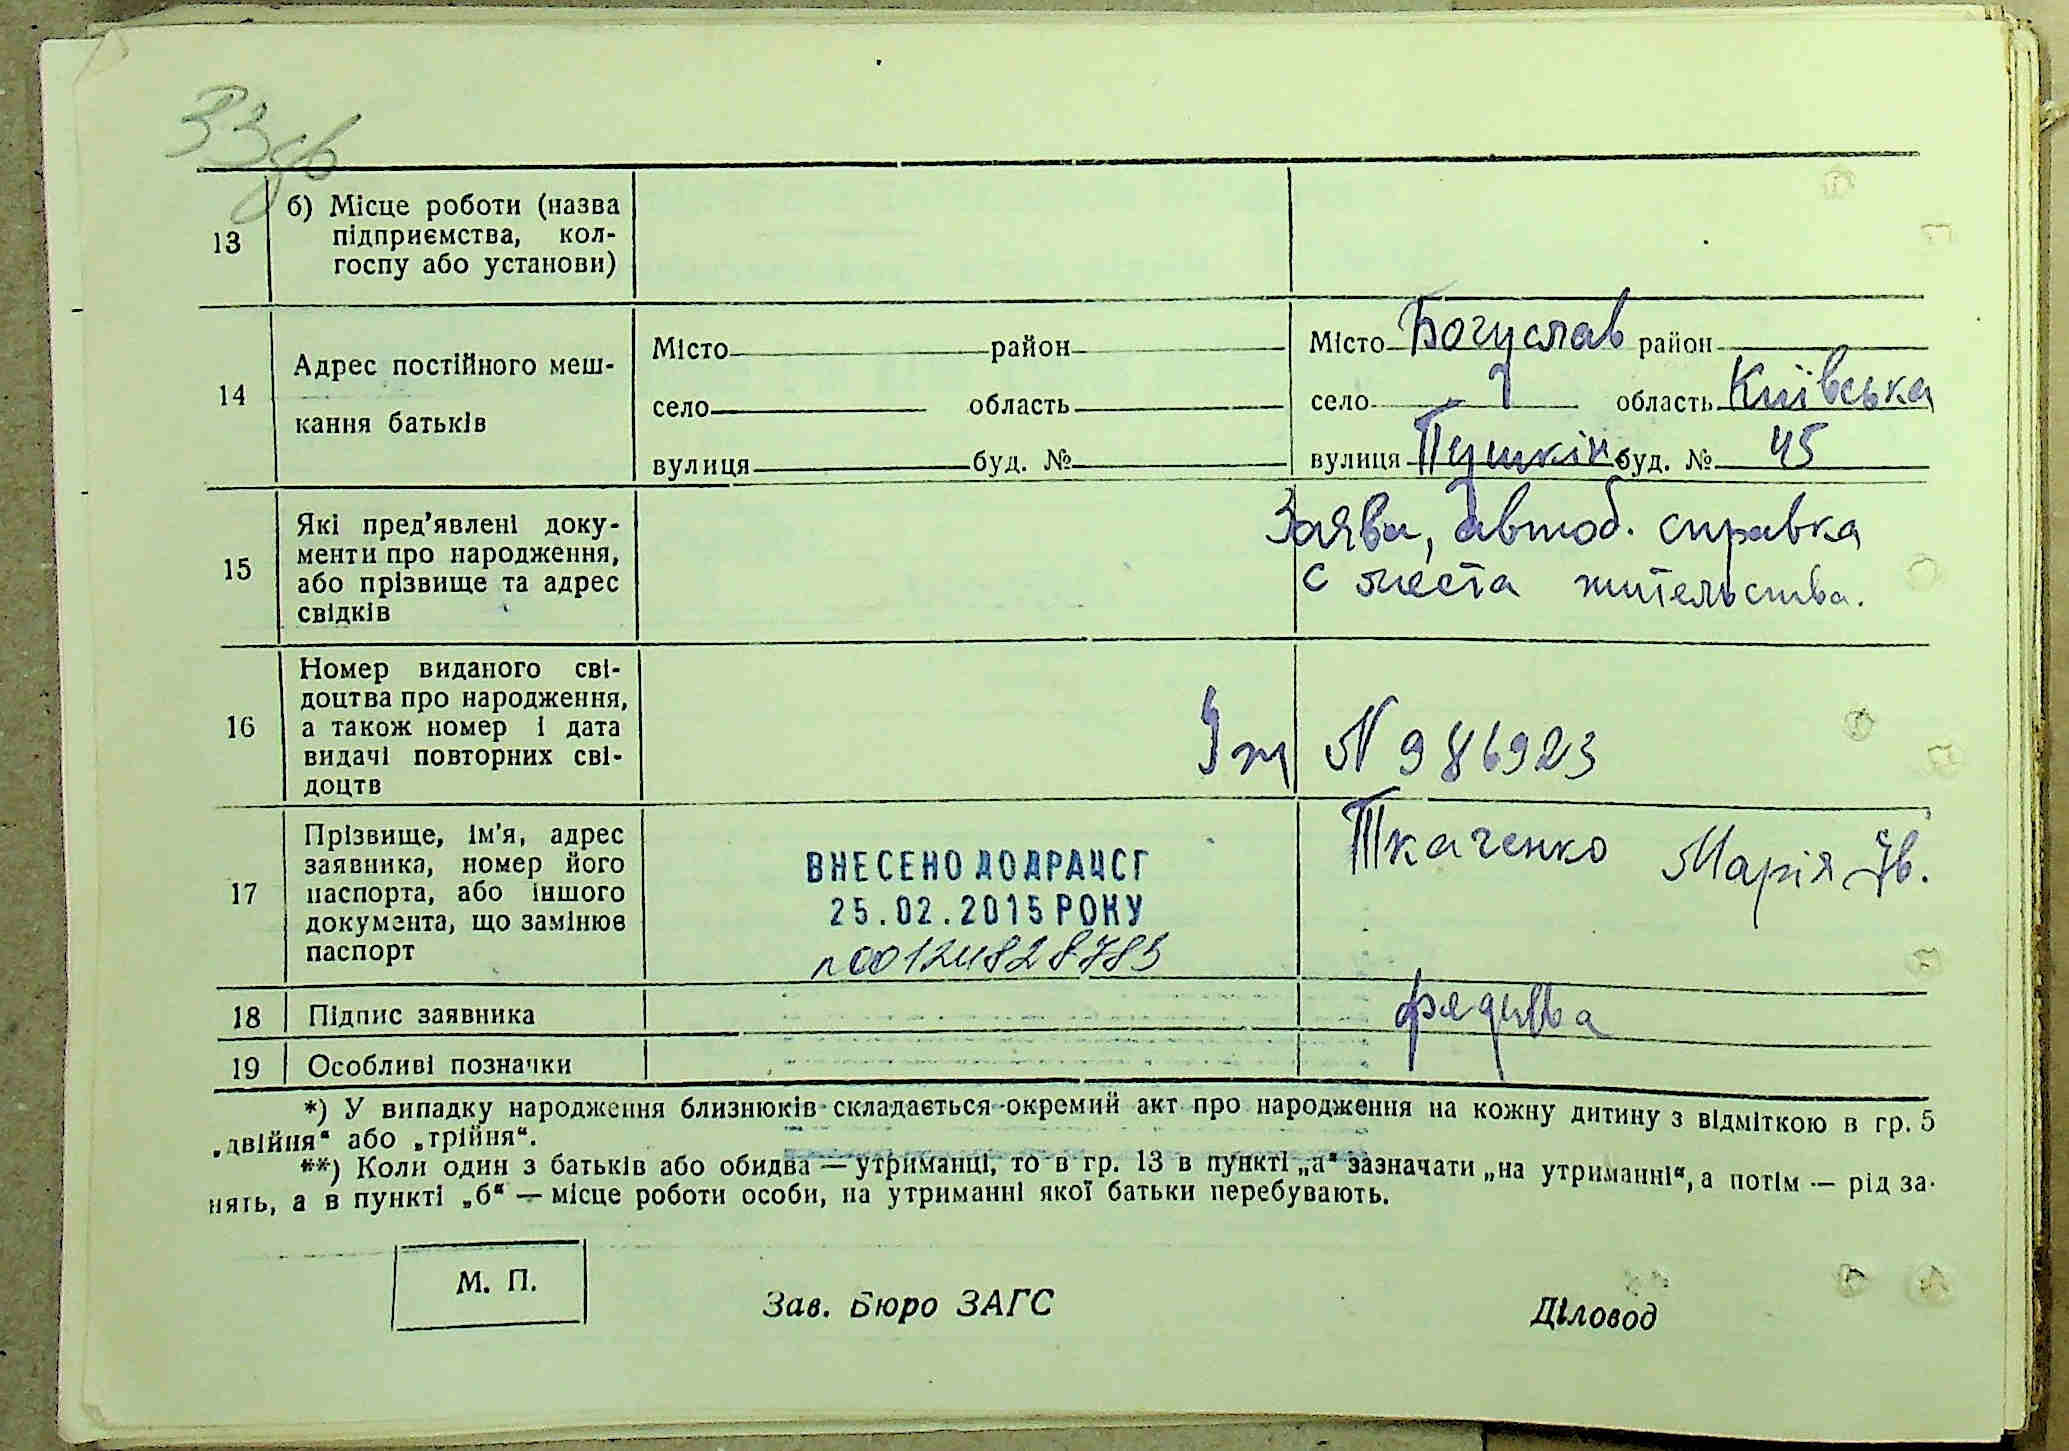 33
13 б) Місце роботи (назва
підприємства, кол-
госпу або установи)
14 Адрес постійного меш-
кання батьків
Місто район
село область
вулиця буд. №
Місто Богуслав район
село область Київська
вулиця Пушкін. буд. № 45
15 Які пред’явлені доку-
менти про народження,
або прізвище та адрес
свідків
Заява, автоб. справка
с места жительства.
16 Номер виданого сві-
доцтва про народження,
а також номер і дата
видачі повторних сві-
доцтв
N 986923
17 Прізвище, ім’я, адрес
заявника, номер його
паспорта, або іншого
документа, що замінює
паспорт
ВНЕСЕНО ДО ДРАЦСГ
25.02.2015 РОКУ
Ткаченко Марія Ів.
18 Підпис заявника
19 Особливі позначки
*) У випадку народження близнюків складається окремий акт про народження на кожну дитину з відміткою в гр. 5
„двійня“ або „трійня“.
**) Коли один з батьків або обидва — утриманці, то в гр. 13 в пункті „а“ зазначати „на утриманні“, а потім — рід за-
нять, а в пункті „б“ — місце роботи особи, на утриманні якої батьки перебувають.
М. П.
Зав. Бюро ЗАГС
Діловод